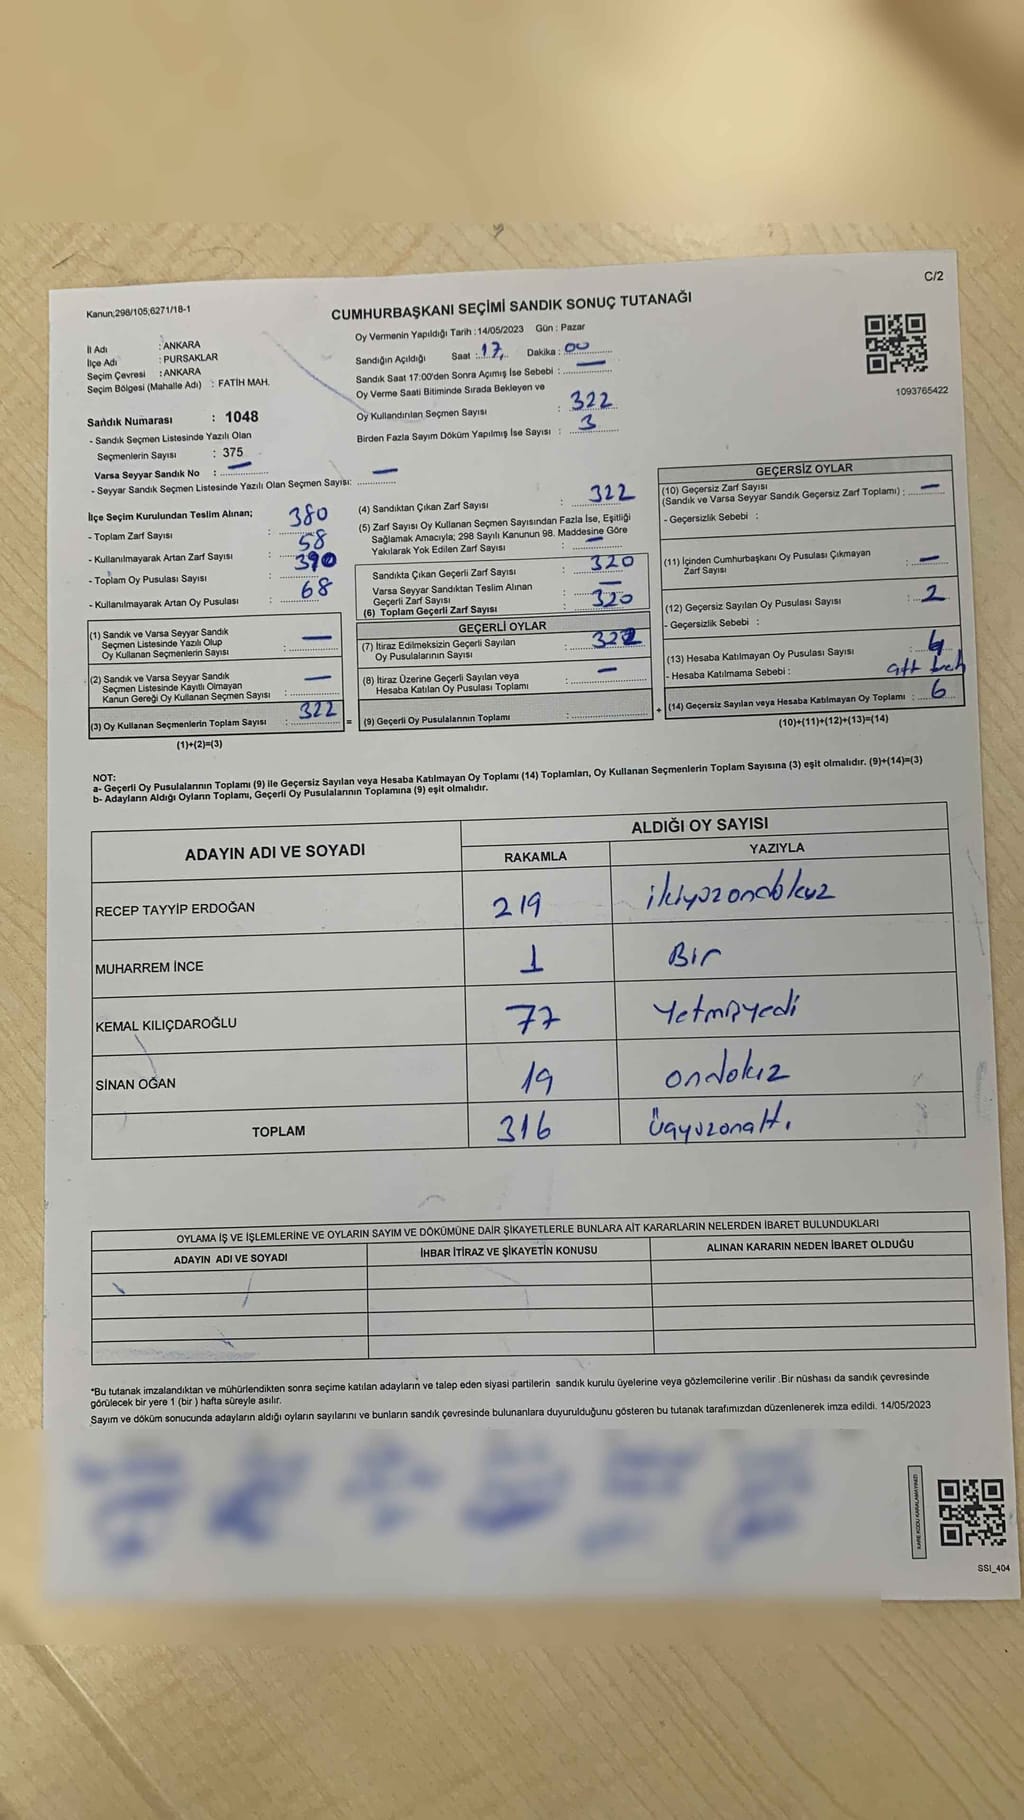 C/2
Kanun;298/105;6271/18-1
CUMHURBAŞKANI SEÇİMİ SANDIK SONUÇ TUTANAĞI
İl Adı : ANKARA
İlçe Adı : PURSAKLAR
Seçim Çevresi : ANKARA
Seçim Bölgesi (Mahalle Adı) : FATİH MAH.
Sandık Numarası : 1048
- Sandık Seçmen Listesinde Yazılı Olan
Seçmenlerin Sayısı : 375
Varsa Seyyar Sandık No : —
- Seyyar Sandık Seçmen Listesinde Yazılı Olan Seçmen Sayısı: —
Oy Vermenin Yapıldığı Tarih : 14/05/2023 Gün : Pazar
Sandığın Açıldığı Saat : 17, Dakika : 00
Sandık Saat 17:00'den Sonra Açımış İse Sebebi : —
Oy Verme Saati Bitiminde Sırada Bekleyen ve
Oy Kullandırılan Seçmen Sayısı : 322
Birden Fazla Sayım Döküm Yapılmış İse Sayısı : 3
1093765422
İlçe Seçim Kurulundan Teslim Alınan;
- Toplam Zarf Sayısı : 380
- Kullanılmayarak Artan Zarf Sayısı : 58
- Toplam Oy Pusulası Sayısı : 390
- Kullanılmayarak Artan Oy Pusulası : 68
(1) Sandık ve Varsa Seyyar Sandık
Seçmen Listesinde Yazılı Olup
Oy Kullanan Seçmenlerin Sayısı : —
(2) Sandık ve Varsa Seyyar Sandık
Seçmen Listesinde Kayıtlı Olmayan
Kanun Gereği Oy Kullanan Seçmen Sayısı : —
(3) Oy Kullanan Seçmenlerin Toplam Sayısı : 322 =
(1)+(2)=(3)
(4) Sandıktan Çıkan Zarf Sayısı : 322
(5) Zarf Sayısı Oy Kullanan Seçmen Sayısından Fazla İse, Eşitliği
Sağlamak Amacıyla; 298 Sayılı Kanunun 98. Maddesine Göre
Yakılarak Yok Edilen Zarf Sayısı : —
Sandıkta Çıkan Geçerli Zarf Sayısı : 320
Varsa Seyyar Sandıktan Teslim Alınan
Geçerli Zarf Sayısı : —
(6) Toplam Geçerli Zarf Sayısı : 320
GEÇERLİ OYLAR
(7) İtiraz Edilmeksizin Geçerli Sayılan
Oy Pusulalarının Sayısı : 322
(8) İtiraz Üzerine Geçerli Sayılan veya
Hesaba Katılan Oy Pusulası Toplamı : —
(9) Geçerli Oy Pusulalarının Toplamı : +
GEÇERSİZ OYLAR
(10) Geçersiz Zarf Sayısı
(Sandık ve Varsa Seyyar Sandık Geçersiz Zarf Toplamı) : —
- Geçersizlik Sebebi :
(11) İçinden Cumhurbaşkanı Oy Pusulası Çıkmayan
Zarf Sayısı : —
(12) Geçersiz Sayılan Oy Pusulası Sayısı : 2
- Geçersizlik Sebebi :
(13) Hesaba Katılmayan Oy Pusulası Sayısı : 4
- Hesaba Katılmama Sebebi :
(14) Geçersiz Sayılan veya Hesaba Katılmayan Oy Toplamı : 6
(10)+(11)+(12)+(13)=(14)
NOT:
a- Geçerli Oy Pusulalarının Toplamı (9) ile Geçersiz Sayılan veya Hesaba Katılmayan Oy Toplamı (14) Toplamları, Oy Kullanan Seçmenlerin Toplam Sayısına (3) eşit olmalıdır. (9)+(14)=(3)
b- Adayların Aldığı Oyların Toplamı, Geçerli Oy Pusulalarının Toplamına (9) eşit olmalıdır.
ADAYIN ADI VE SOYADI ALDIĞI OY SAYISI
RAKAMLA YAZIYLA
RECEP TAYYİP ERDOĞAN 219 ikiyüzondokuz
MUHARREM İNCE 1 Bir
KEMAL KILIÇDAROĞLU 77 Yetmişyedi
SİNAN OĞAN 19 ondokuz
TOPLAM 316 Üçyüzonaltı
OYLAMA İŞ VE İŞLEMLERİNE VE OYLARIN SAYIM VE DÖKÜMÜNE DAİR ŞİKAYETLERLE BUNLARA AİT KARARLARIN NELERDEN İBARET BULUNDUKLARI
ADAYIN ADI VE SOYADI İHBAR İTİRAZ VE ŞİKAYETİN KONUSU ALINAN KARARIN NEDEN İBARET OLDUĞU
*Bu tutanak imzalandıktan ve mühürlendikten sonra seçime katılan adayların ve talep eden siyasi partilerin sandık kurulu üyelerine veya gözlemcilerine verilir .Bir nüshası da sandık çevresinde
görülecek bir yere 1 (bir ) hafta süreyle asılır.
Sayım ve döküm sonucunda adayların aldığı oyların sayılarını ve bunların sandık çevresinde bulunanlara duyurulduğunu gösteren bu tutanak tarafımızdan düzenlenerek imza edildi. 14/05/2023
KARE KODU KARALAMAYINIZ!
SSI_404